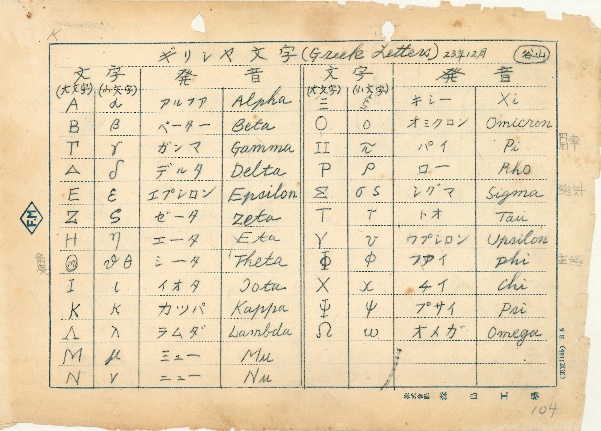 ギリシヤ文字 (Greek Letters) 23年12月 谷山
文字 発音 文字 発音
(大文字) (小文字) (大文字) (小文字)
Α α アルファ Alpha Ξ ξ キシー Xi
Β β ベーター Beta Ο ο オミクロン Omicron
Γ γ ガンマ Gamma Π π パイ Pi
Δ δ デルタ Delta Ρ ρ ロー Rho
Ε ε エプシロン Epsilon Σ σ s シグマ Sigma
Ζ ζ ゼータ Zeta Τ τ トオ Tau
Η η エータ Eta Υ υ ウプシロン Upsilon
Θ ϑ θ シータ Theta Φ φ フアイ phi
Ι ι イオタ Iota Χ χ チイ Chi
Κ κ カツパ Kappa Ψ ψ プサイ Psi
Λ λ ラムダ Lambda Ω ω オメガ Omega
Μ μ ミュー Mu
Ν ν ニュー Nu
FM
104